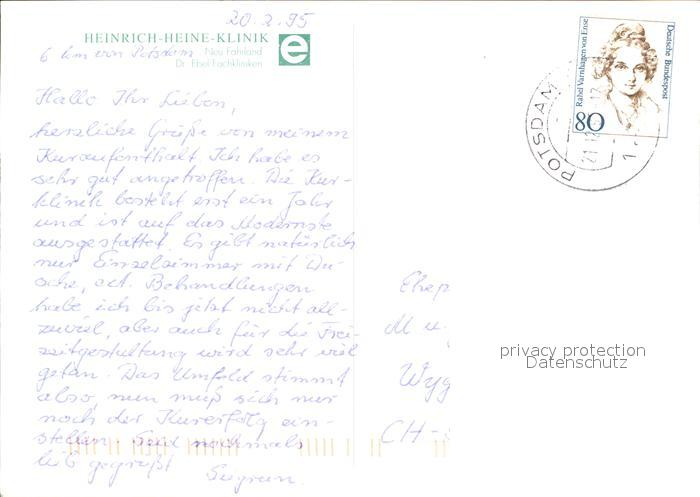 20.2.95
HEINRICH-HEINE-KLINIK
6 km von Potsdam Neu Fahrland
Dr. Ebel Fachkliniken
e
Hallo Ihr Lieben,
herzliche Grüße von meinem
Kuraufenthalt. Ich habe es
sehr gut angetroffen. Die Kur-
klinik besteht erst ein Jahr
und ist auf das Modernste
ausgestattet. Es gibt natürlich
nur Einzelzimmer mit Du-
sche, ect. Behandlungen
habe ich bis jetzt nicht all-
zuviel, aber auch für die Frei-
zeitgestaltung wird sehr viel
getan. Das Umfeld stimmt
also, nun muß sich nur
noch der Kurerfolg ein-
stellen. Seid nochmals
lieb gegrüßt
Sigrun.
Rahel Varnhagen von Ense
Deutsche Bundespost
80
POTSDAM
1
Ehep
M u.
Wyg
CH-
privacy protection
Datenschutz